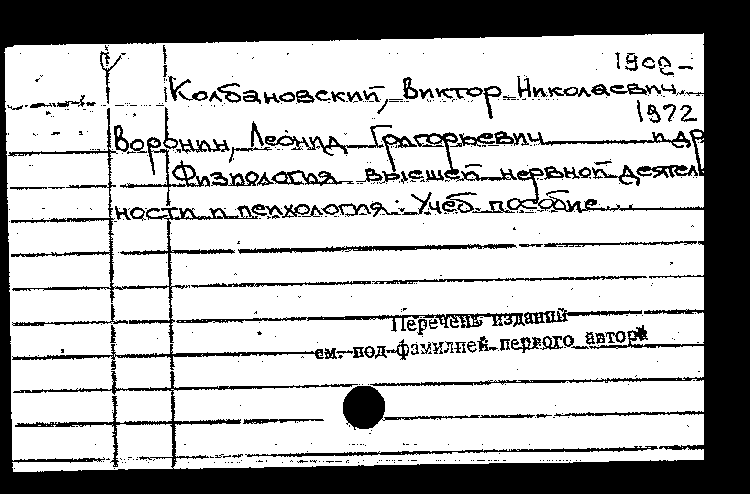 1902-
Колбановский, Виктор Николаевич
1972
Воронин, Леонид Григорьевич и др
Физиология высшей нервной деятел
ности и психология: Учеб. пособие...
Перечень изданий
см. под фамилией первого автора